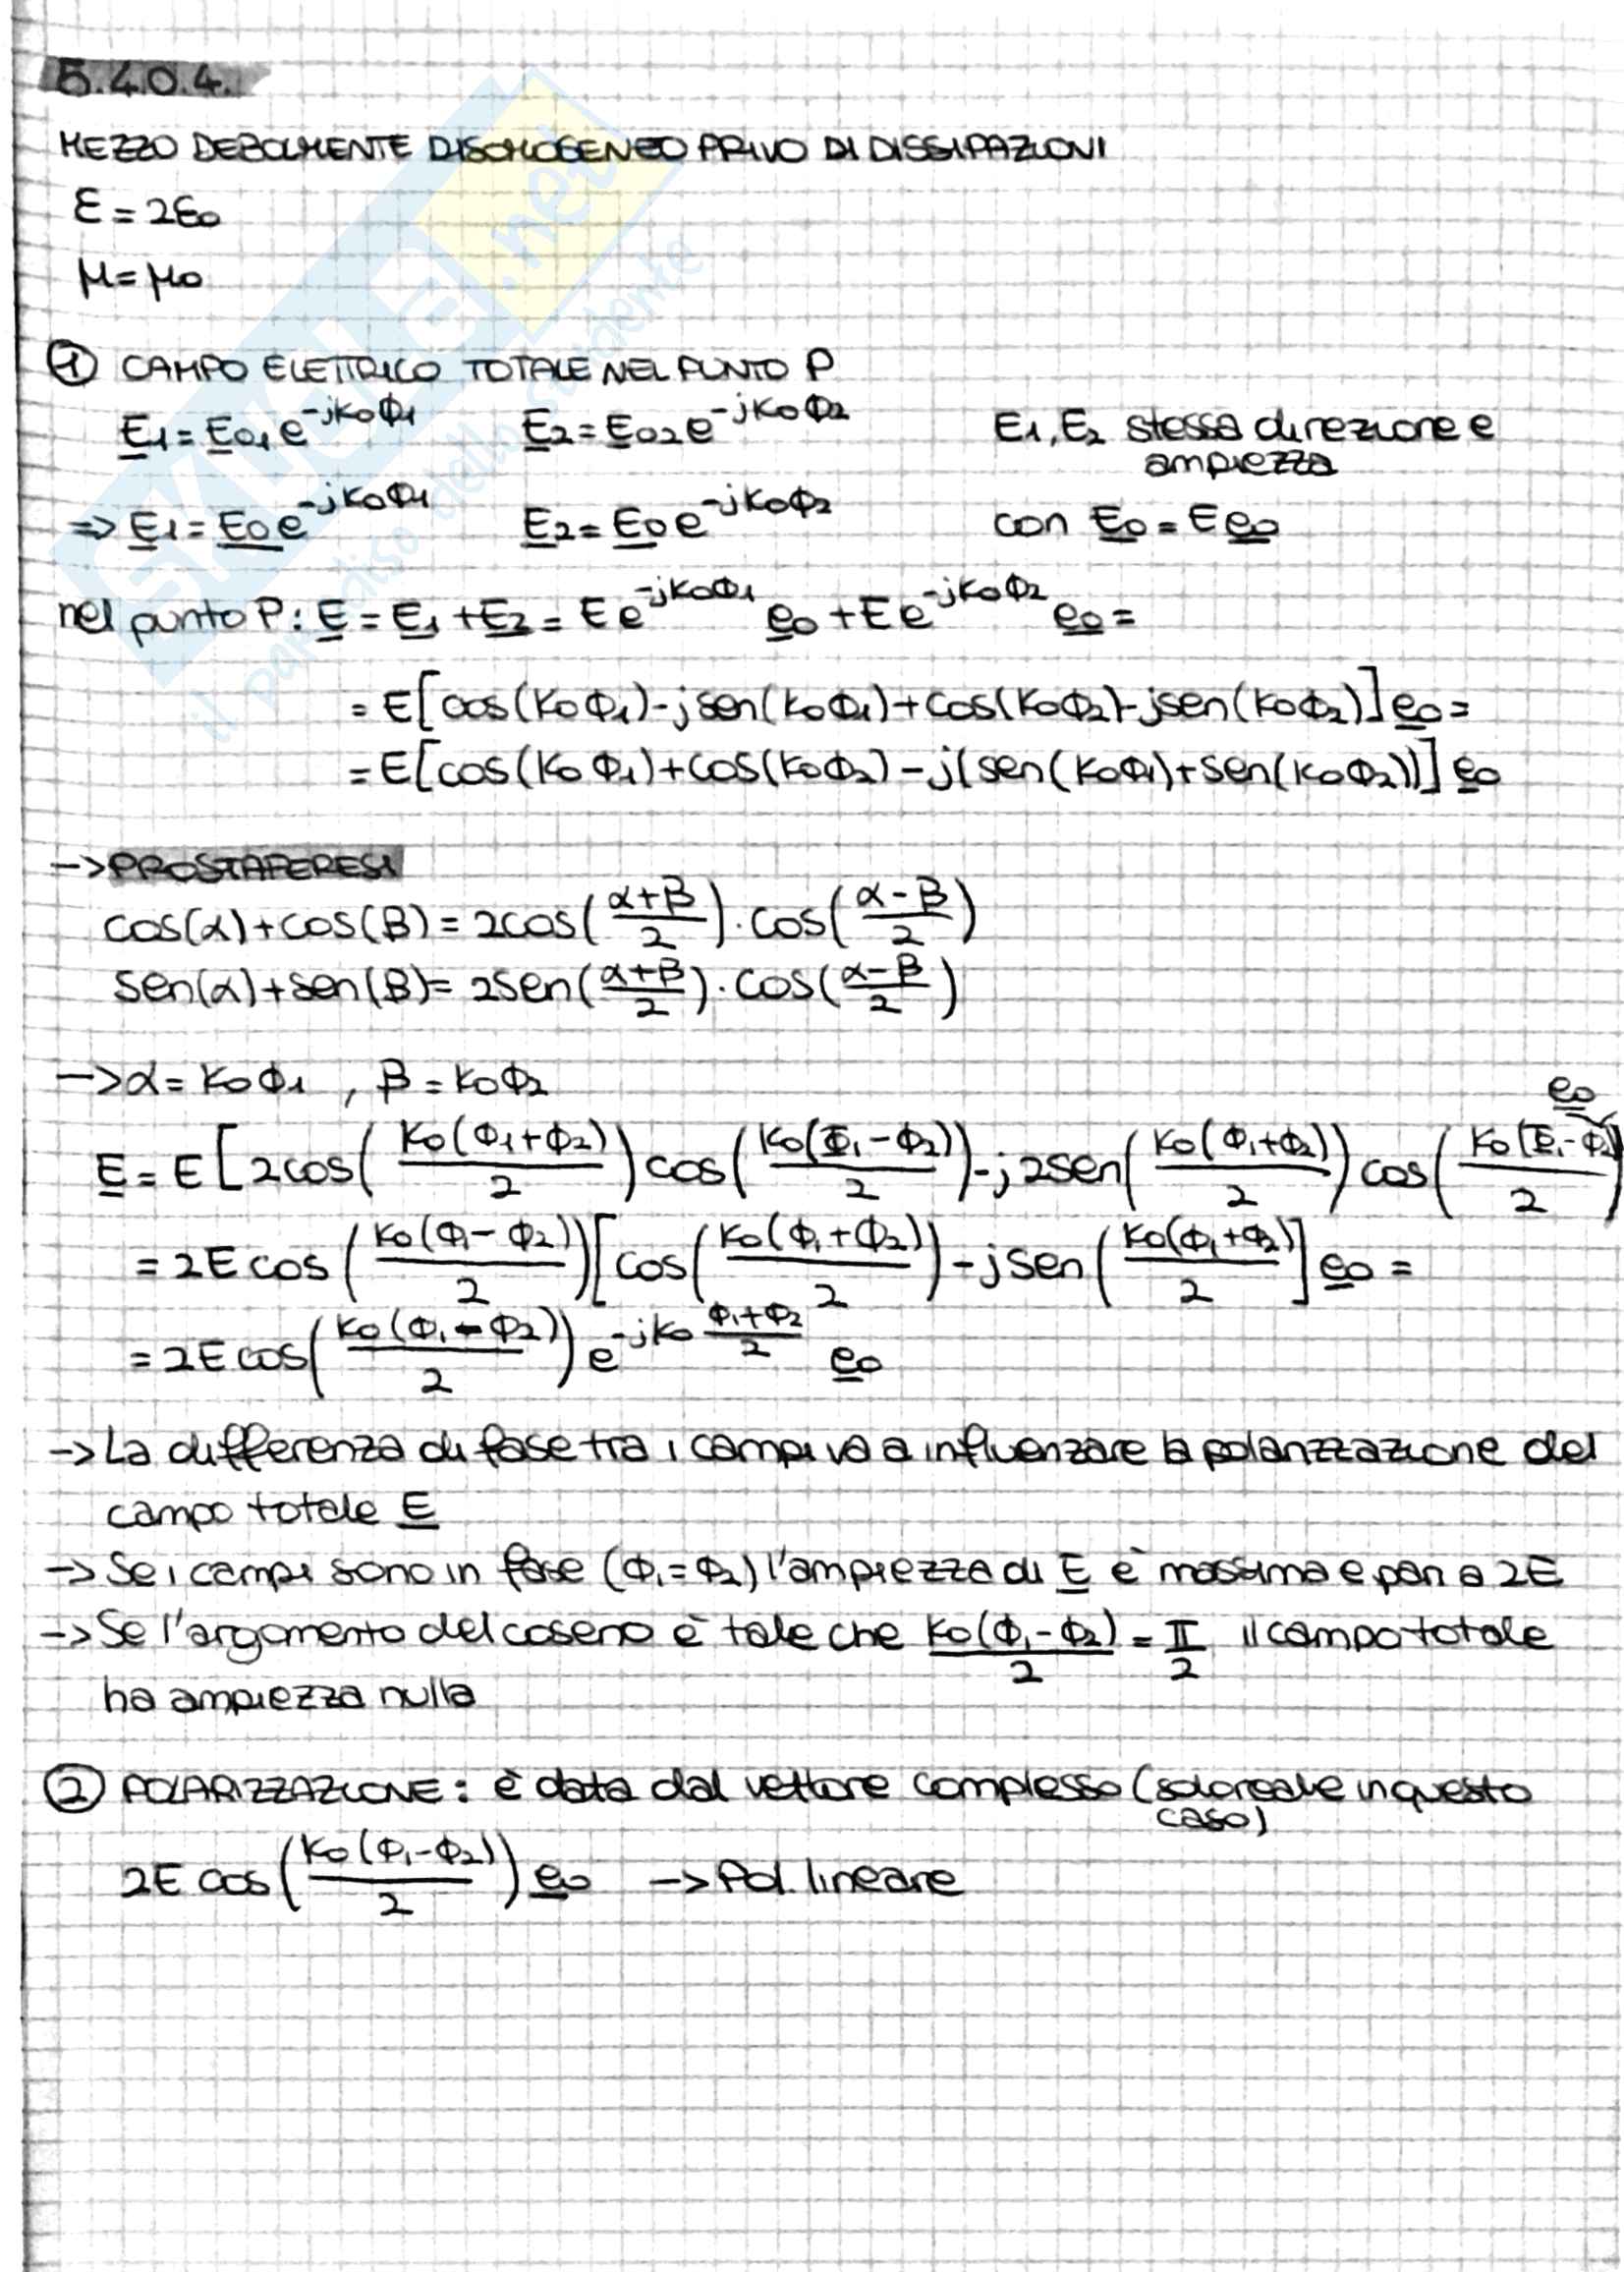 5.4.0.4.
MEZZO DEBOLMENTE DISOMOGENEO PRIVO DI DISSIPAZIONI
ε = 2ε₀
μ = μ₀
① CAMPO ELETTRICO TOTALE NEL PUNTO P
E̲₁ = E̲₀₁ e^{-jk₀Φ₁} E̲₂ = E̲₀₂ e^{-jk₀Φ₂} E₁, E₂ stessa direzione e
ampiezza
=> E̲₁ = E̲₀ e^{-jk₀Φ₁} E̲₂ = E̲₀ e^{-jk₀Φ₂} con E̲₀ = E e̲₀
nel punto P: E̲ = E̲₁ + E̲₂ = E e^{-jk₀Φ₁} e̲₀ + E e^{-jk₀Φ₂} e̲₀ =
= E[cos(k₀Φ₁) - jsen(k₀Φ₁) + cos(k₀Φ₂) - jsen(k₀Φ₂)] e̲₀ =
= E[cos(k₀Φ₁) + cos(k₀Φ₂) - j(sen(k₀Φ₁) + sen(k₀Φ₂))] e̲₀
-> PROSTAFERESI
cos(α) + cos(β) = 2cos((α+β)/2) · cos((α-β)/2)
sen(α) + sen(β) = 2sen((α+β)/2) · cos((α-β)/2)
-> α = k₀Φ₁ , β = k₀Φ₂
e̲₀
E̲ = E[2cos(k₀(Φ₁+Φ₂)/2) cos(k₀(Φ₁-Φ₂)/2) - j2sen(k₀(Φ₁+Φ₂)/2) cos(k₀(Φ₁-Φ₂)/2)
= 2E cos(k₀(Φ₁-Φ₂)/2) [cos(k₀(Φ₁+Φ₂)/2) - jsen(k₀(Φ₁+Φ₂)/2] e̲₀ =
= 2E cos(k₀(Φ₁-Φ₂)/2) e^{-jk₀ (Φ₁+Φ₂)/2} e̲₀
-> La differenza di fase tra i campi va a influenzare la polarizzazione del
campo totale E̲
-> Se i campi sono in fase (Φ₁=Φ₂) l'ampiezza di E̲ è massima e pari a 2E
-> Se l'argomento del coseno è tale che k₀(Φ₁-Φ₂)/2 = π/2 il campo totale
ha ampiezza nulla
② POLARIZZAZIONE: è data dal vettore complesso (solo reale in questo
caso)
2E cos(k₀(Φ₁-Φ₂)/2) e̲₀ -> Pol. lineare
SKUOLA.net
il paradiso dello studente